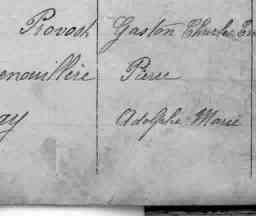 Provost Gaston Charles
enouillère Pierre
ay Adolphe Marie